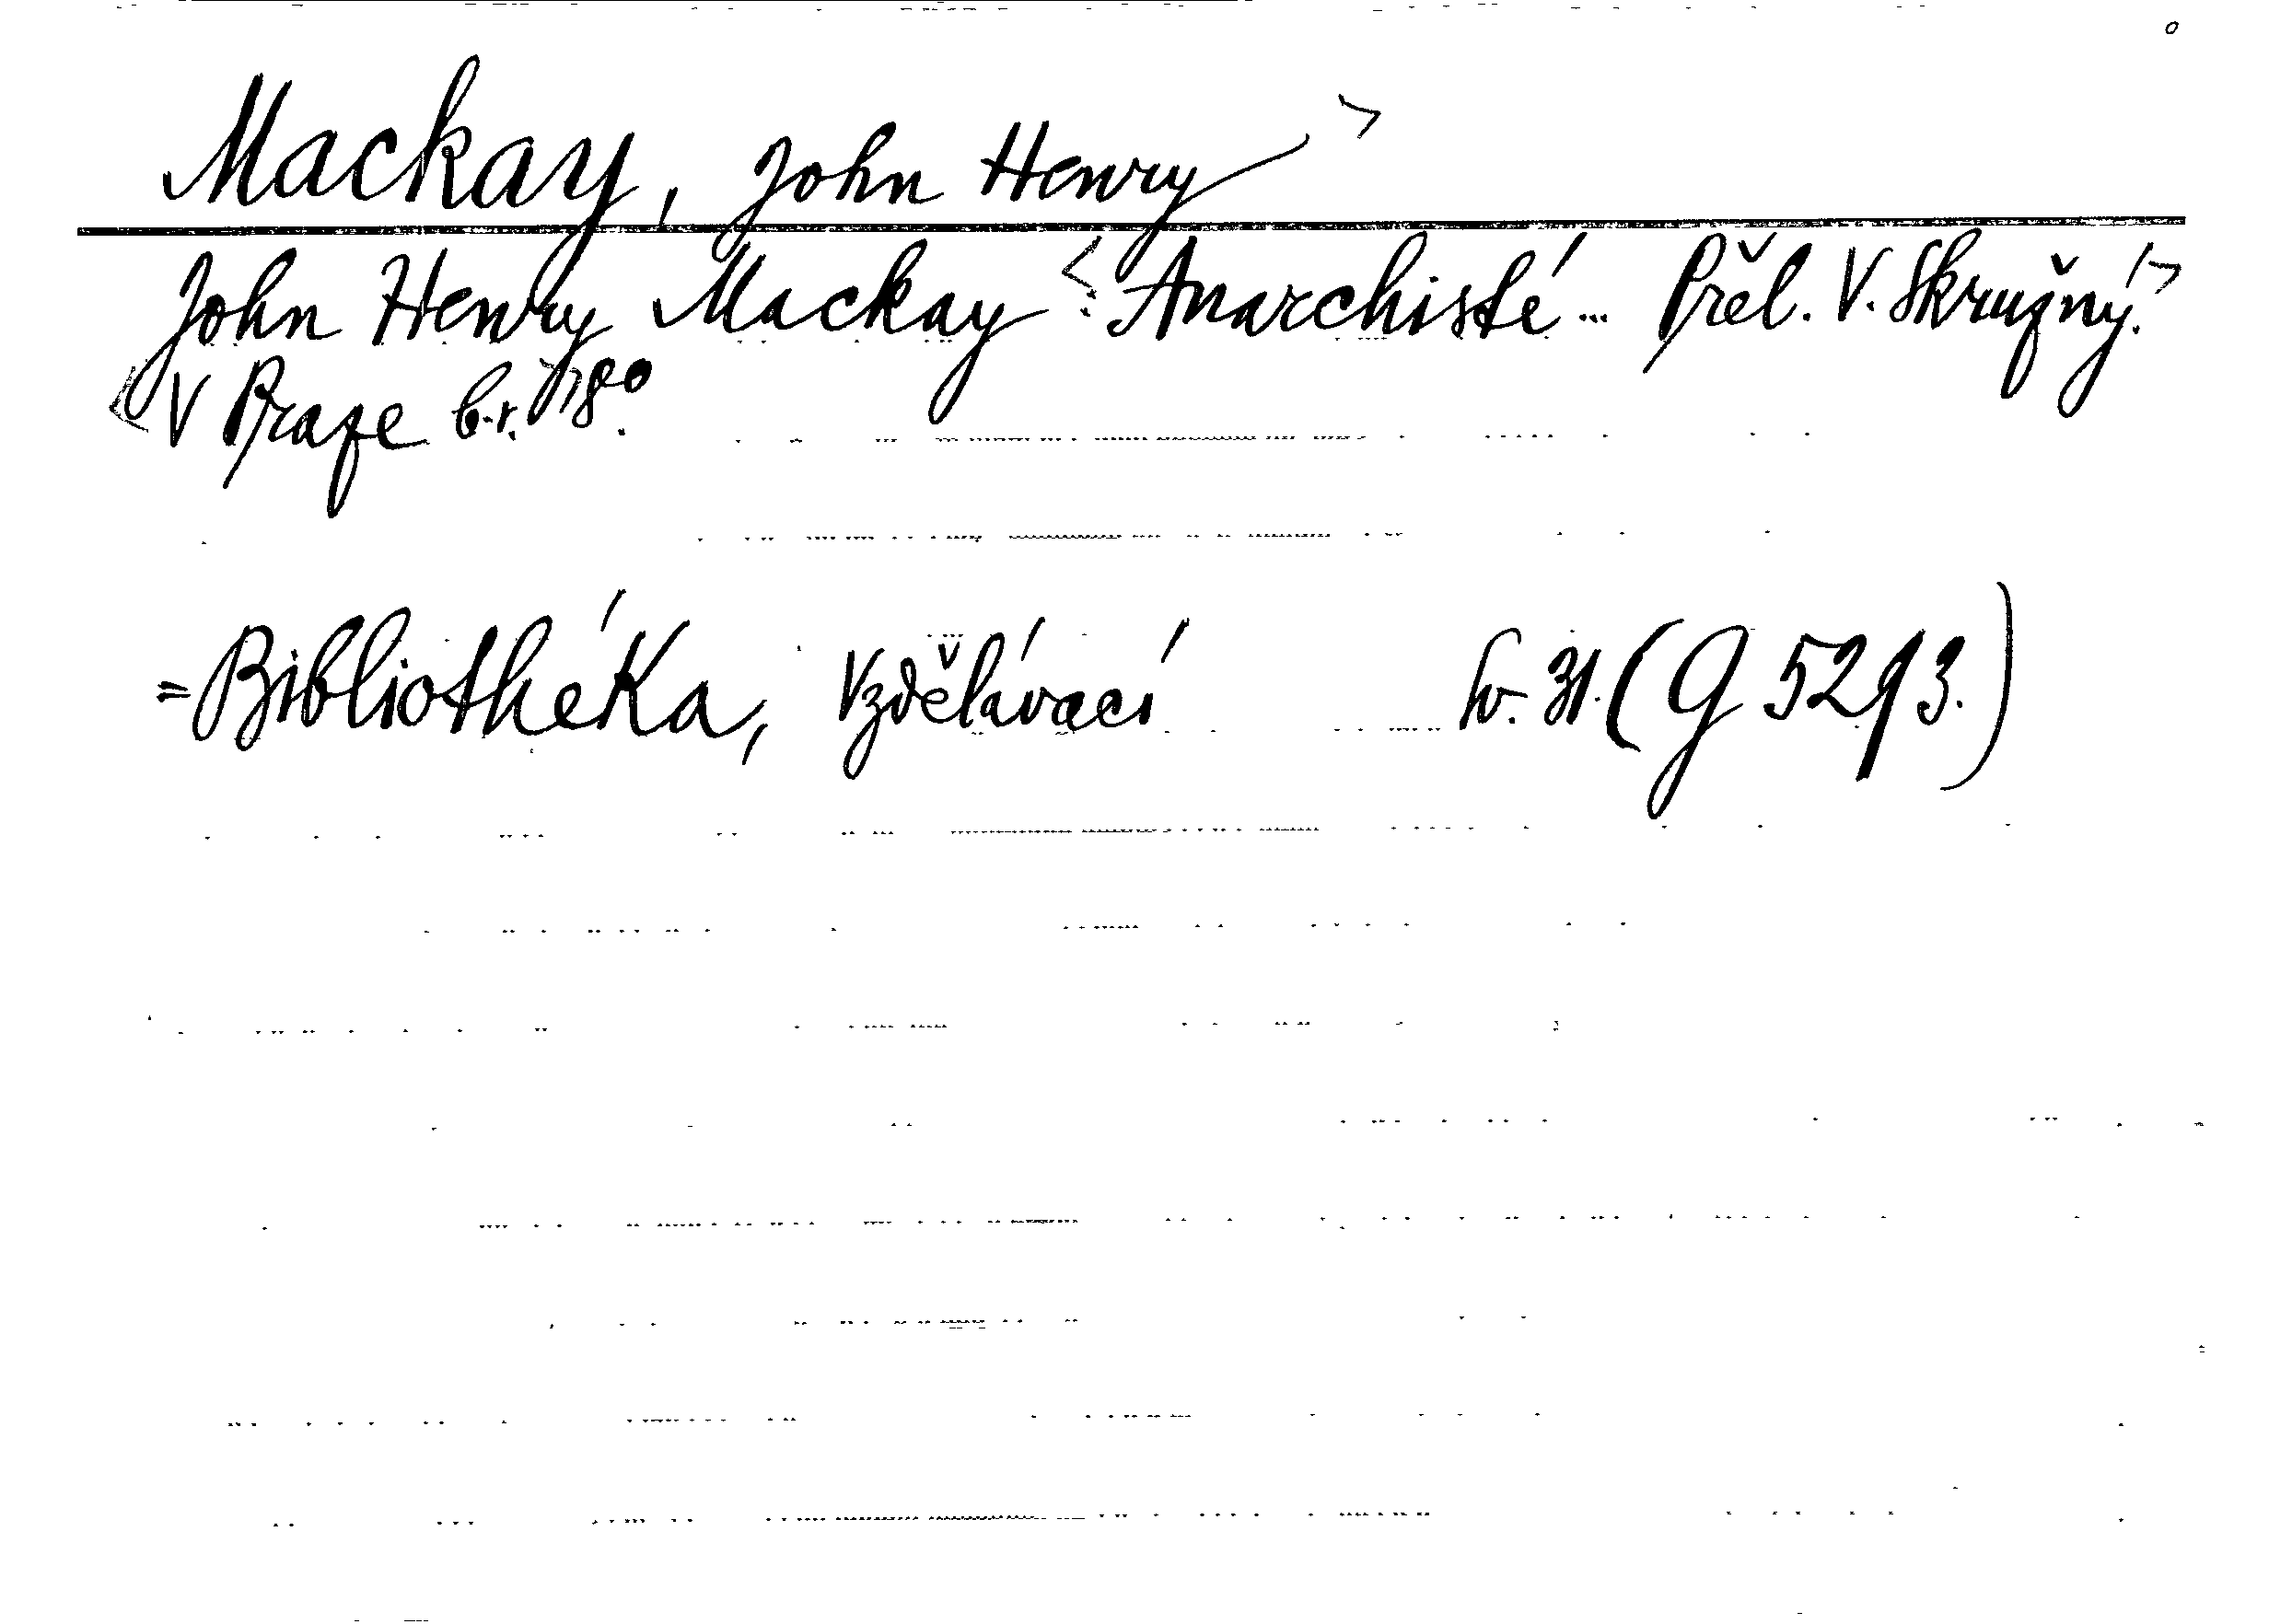 Mackay, John Henry >
John Henry Mackay < Anarchisté ... Přel. V. Skružný. >
< V Praze b.r. > 8°.
= Bibliothéka, Vzdělávací sv. 31. (G 5293.)